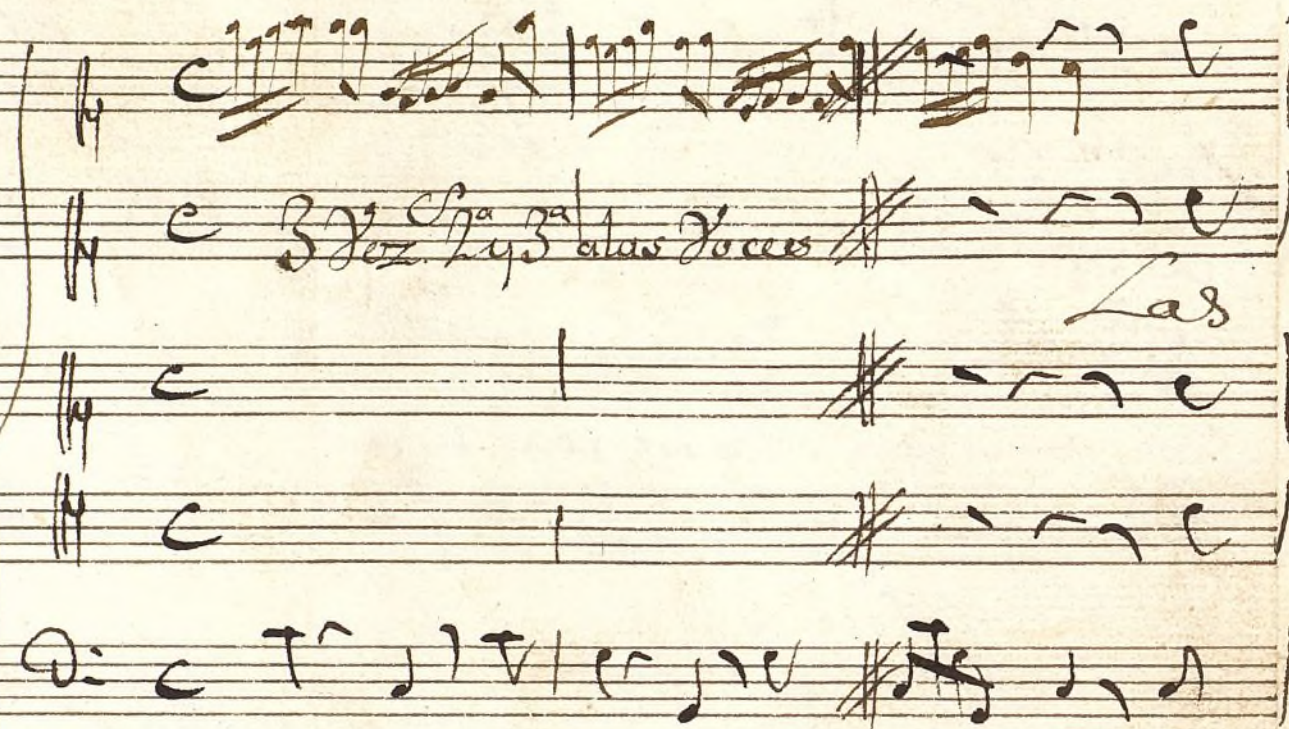 3 Vez. 2ª y 3ª a las Voces
Las